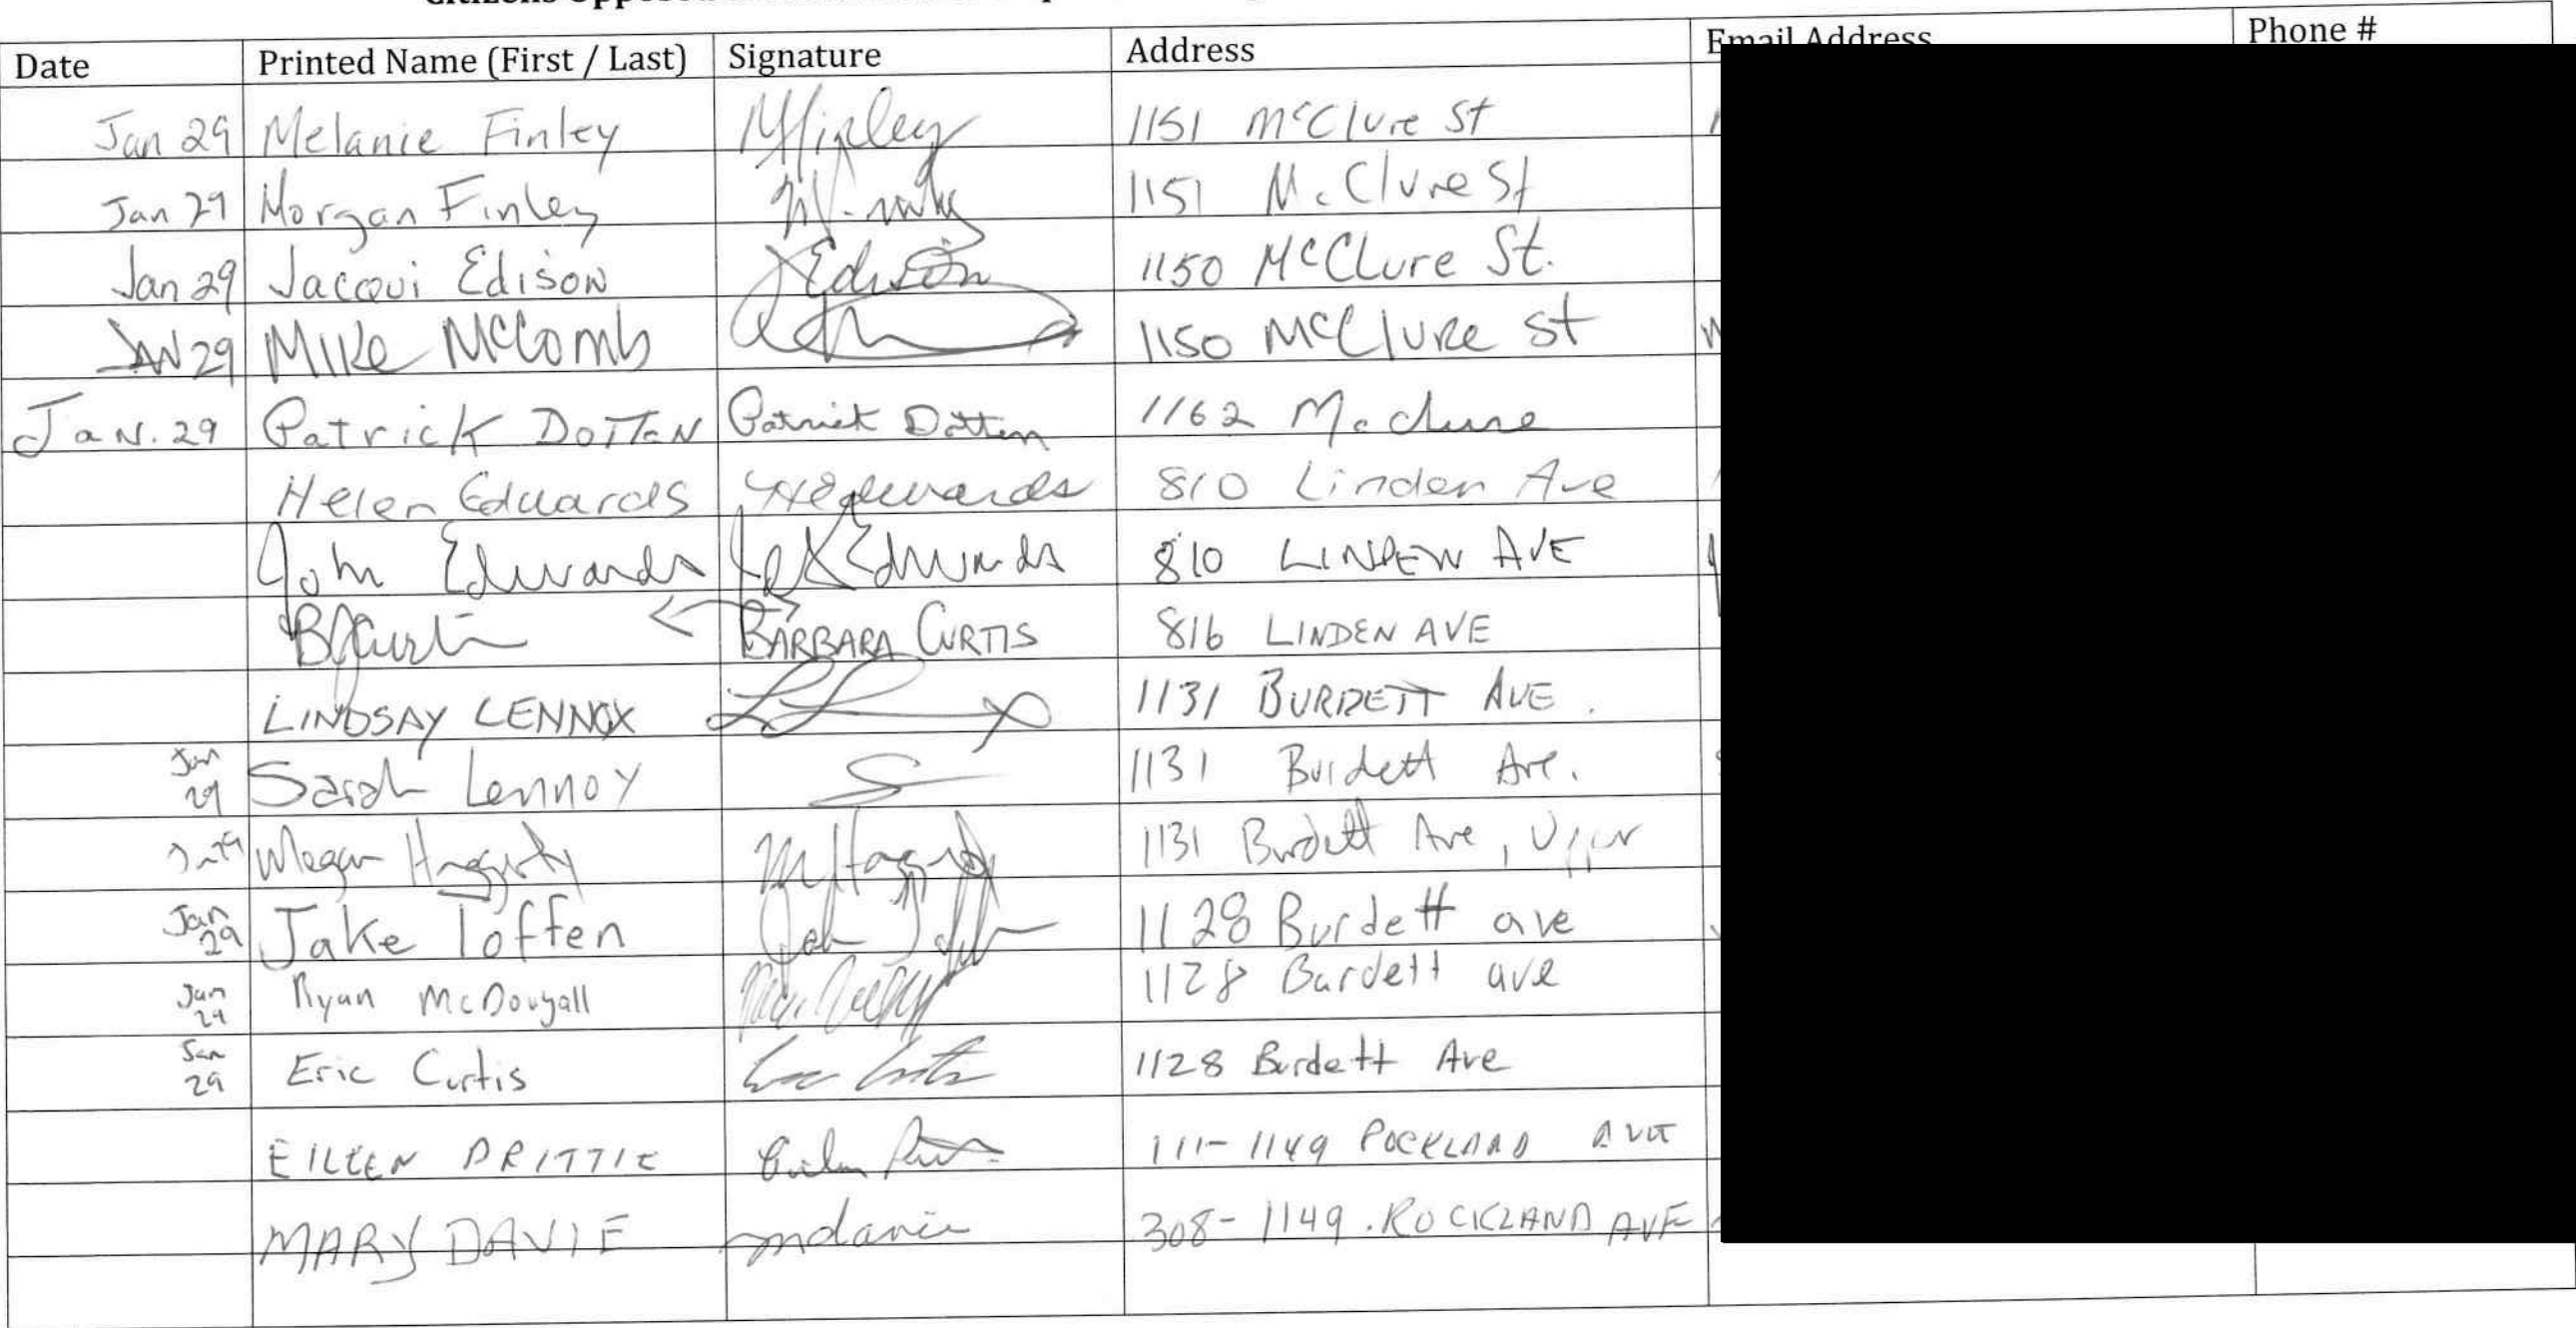 Citizens Oppose
Date Printed Name (First / Last) Signature Address Email Address Phone #
Jan 29 Melanie Finley MFinley 1151 McClure St
Jan 29 Morgan Finley 1151 McClure St
Jan 29 Jacqui Edison JEdison 1150 McClure St.
JAN 29 MIKe McComb 1150 McClURe St
JaN. 29 Patrick DoTTeN Patrick Dotten 1162 McClure
Helen Edwards HEdwards 810 Linden Ave
John Edwards Edwards 810 LINDEN AVE
BJCurtis <-> BARBARA CURTIS 816 LINDEN AVE
LINDSAY LENNOX 1131 BURDETT AVE.
Jan 29 Sarah Lennox 1131 Burdett Ave.
Jan 29 Megan Haggerty MHaggerty 1131 Burdett Ave, Upper
Jan 29 Jake Toffen 1128 Burdett ave
Jan 29 Ryan McDougall 1128 Burdett ave
Jan 29 Eric Curtis Eric Curtis 1128 Burdett Ave
EILEEN 111-1149 ROCKLAND AVE
MARY DAVIE mdavie 308-1149. ROCKLAND AVE